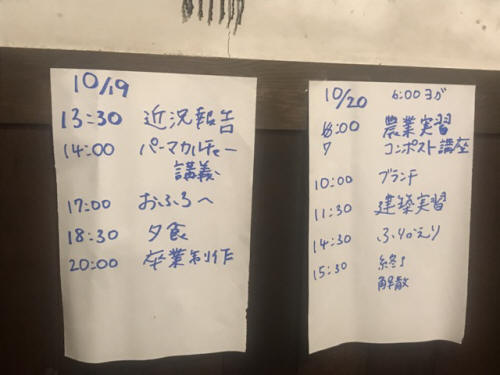 10/19
13:30 近況報告
14:00 パーマカルチャー
講義
17:00 おふろへ
18:30 夕食
20:00 卒業制作
10/20 6:00 ヨガ
7:00 農業実習
コンポスト講座
10:00 ブランチ
11:30 建築実習
14:30 ふりかえり
15:30 終了
解散